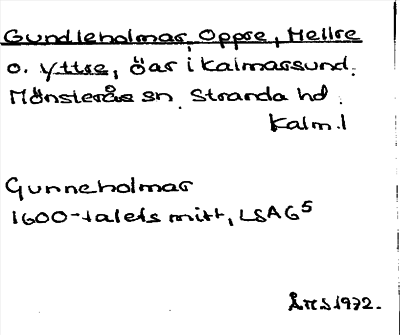 Gundleholmar, Oppre, Mellre
o. Yttre, öar i Kalmarsund.
Mönsterås sn. Stranda hd.
Kalm.l
Gunneholmar
1600-talets mitt, LSAG5
1972.